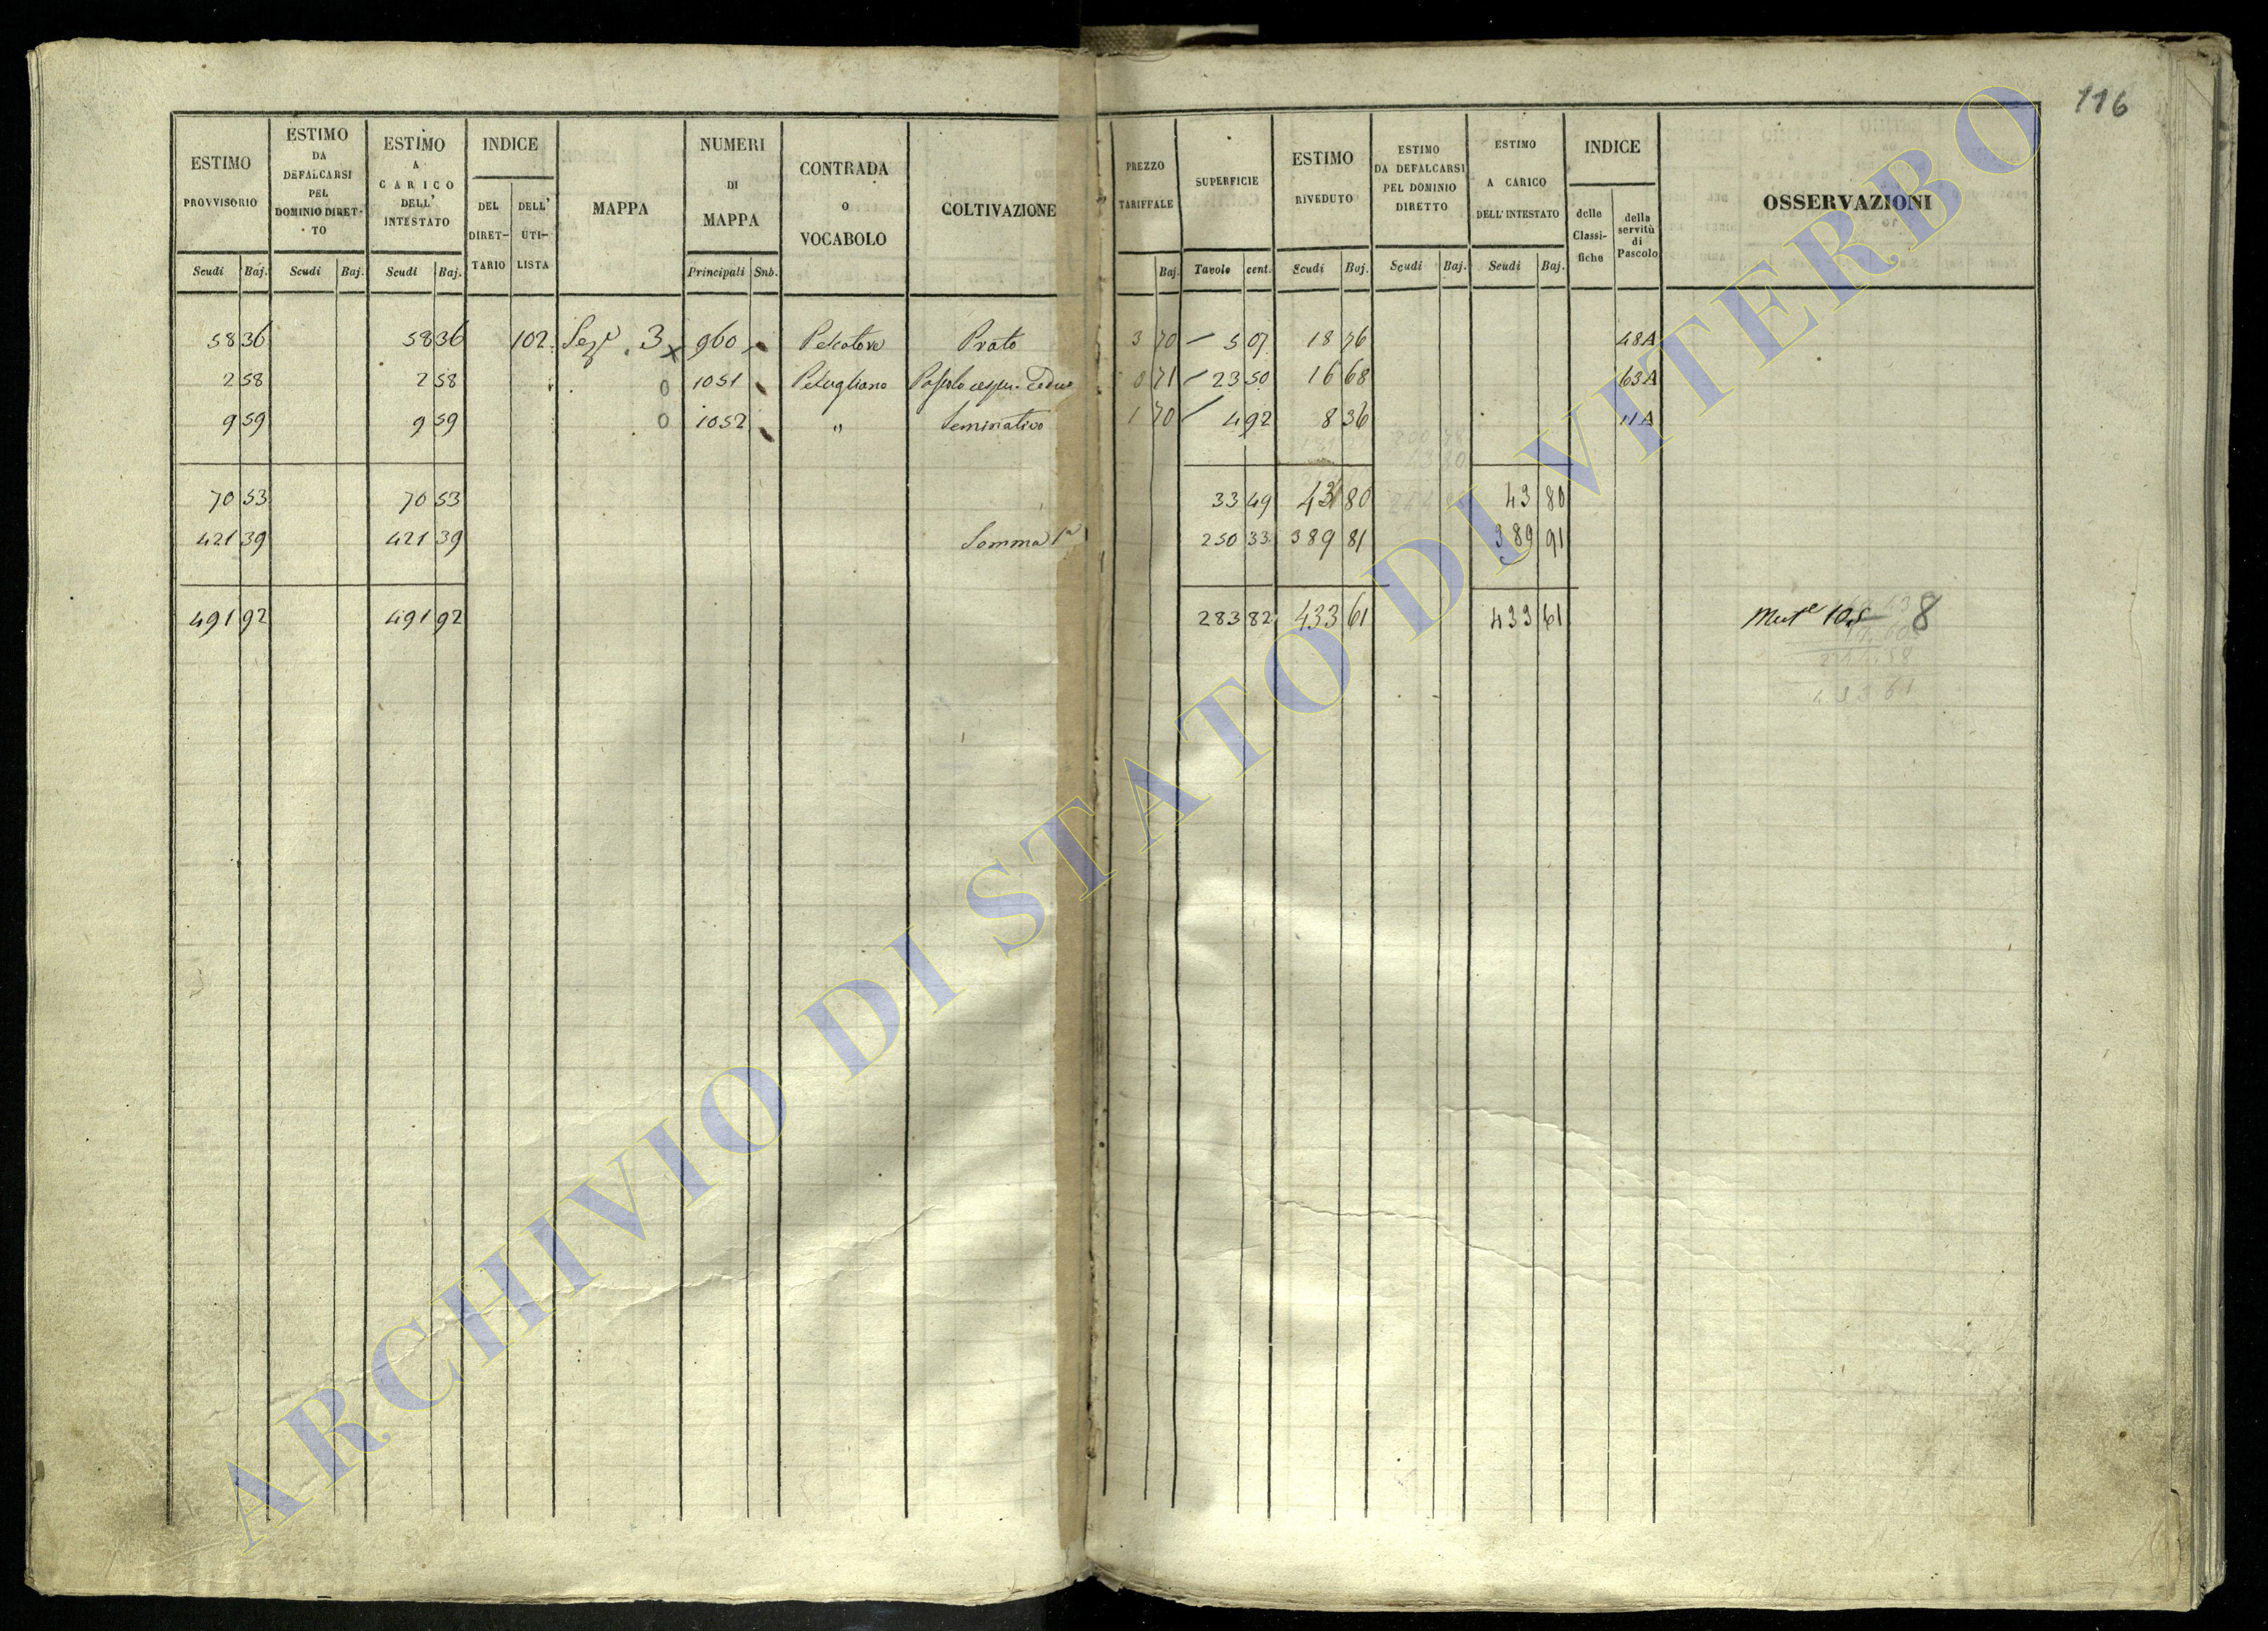 116
ESTIMO PROVVISORIO
ESTIMO DA DEFALCARSI PEL DOMINIO DIRET-TO
ESTIMO A CARICO DELL' INTESTATO
INDICE
DEL DIRET-TARIO
DELL' UTI-LISTA
MAPPA
NUMERI DI MAPPA
CONTRADA O VOCABOLO
COLTIVAZIONE
PREZZO TARIFFALE
SUPERFICIE
ESTIMO RIVEDUTO
ESTIMO DA DEFALCARSI PEL DOMINIO DIRETTO
ESTIMO A CARICO DELL' INTESTATO
INDICE
delle Classi-fiche
della servitù di Pascolo
OSSERVAZIONI
Scudi Baj. Scudi Baj. Scudi Baj. Principali Sub. Baj. Tavole cent. Scudi Baj. Scudi Baj. Scudi Baj.
58 36 58 36 102 Sez.e 3 x 960 Prato 3 70 5 07 18 76 48A
2 58 2 58 0 1051 Pascolo 0 71 23 50 16 68 63A
9 59 9 59 0 1052 " Seminativo 1 70 4 92 8 36 11A
70 53 70 53 33 49 43 80 43 80
421 39 421 39 Somma 250 33 389 81 389 91
491 92 491 92 283 82 433 61 433 61 8
433 61
ARCHIVIO DI STATO DI VITERBO